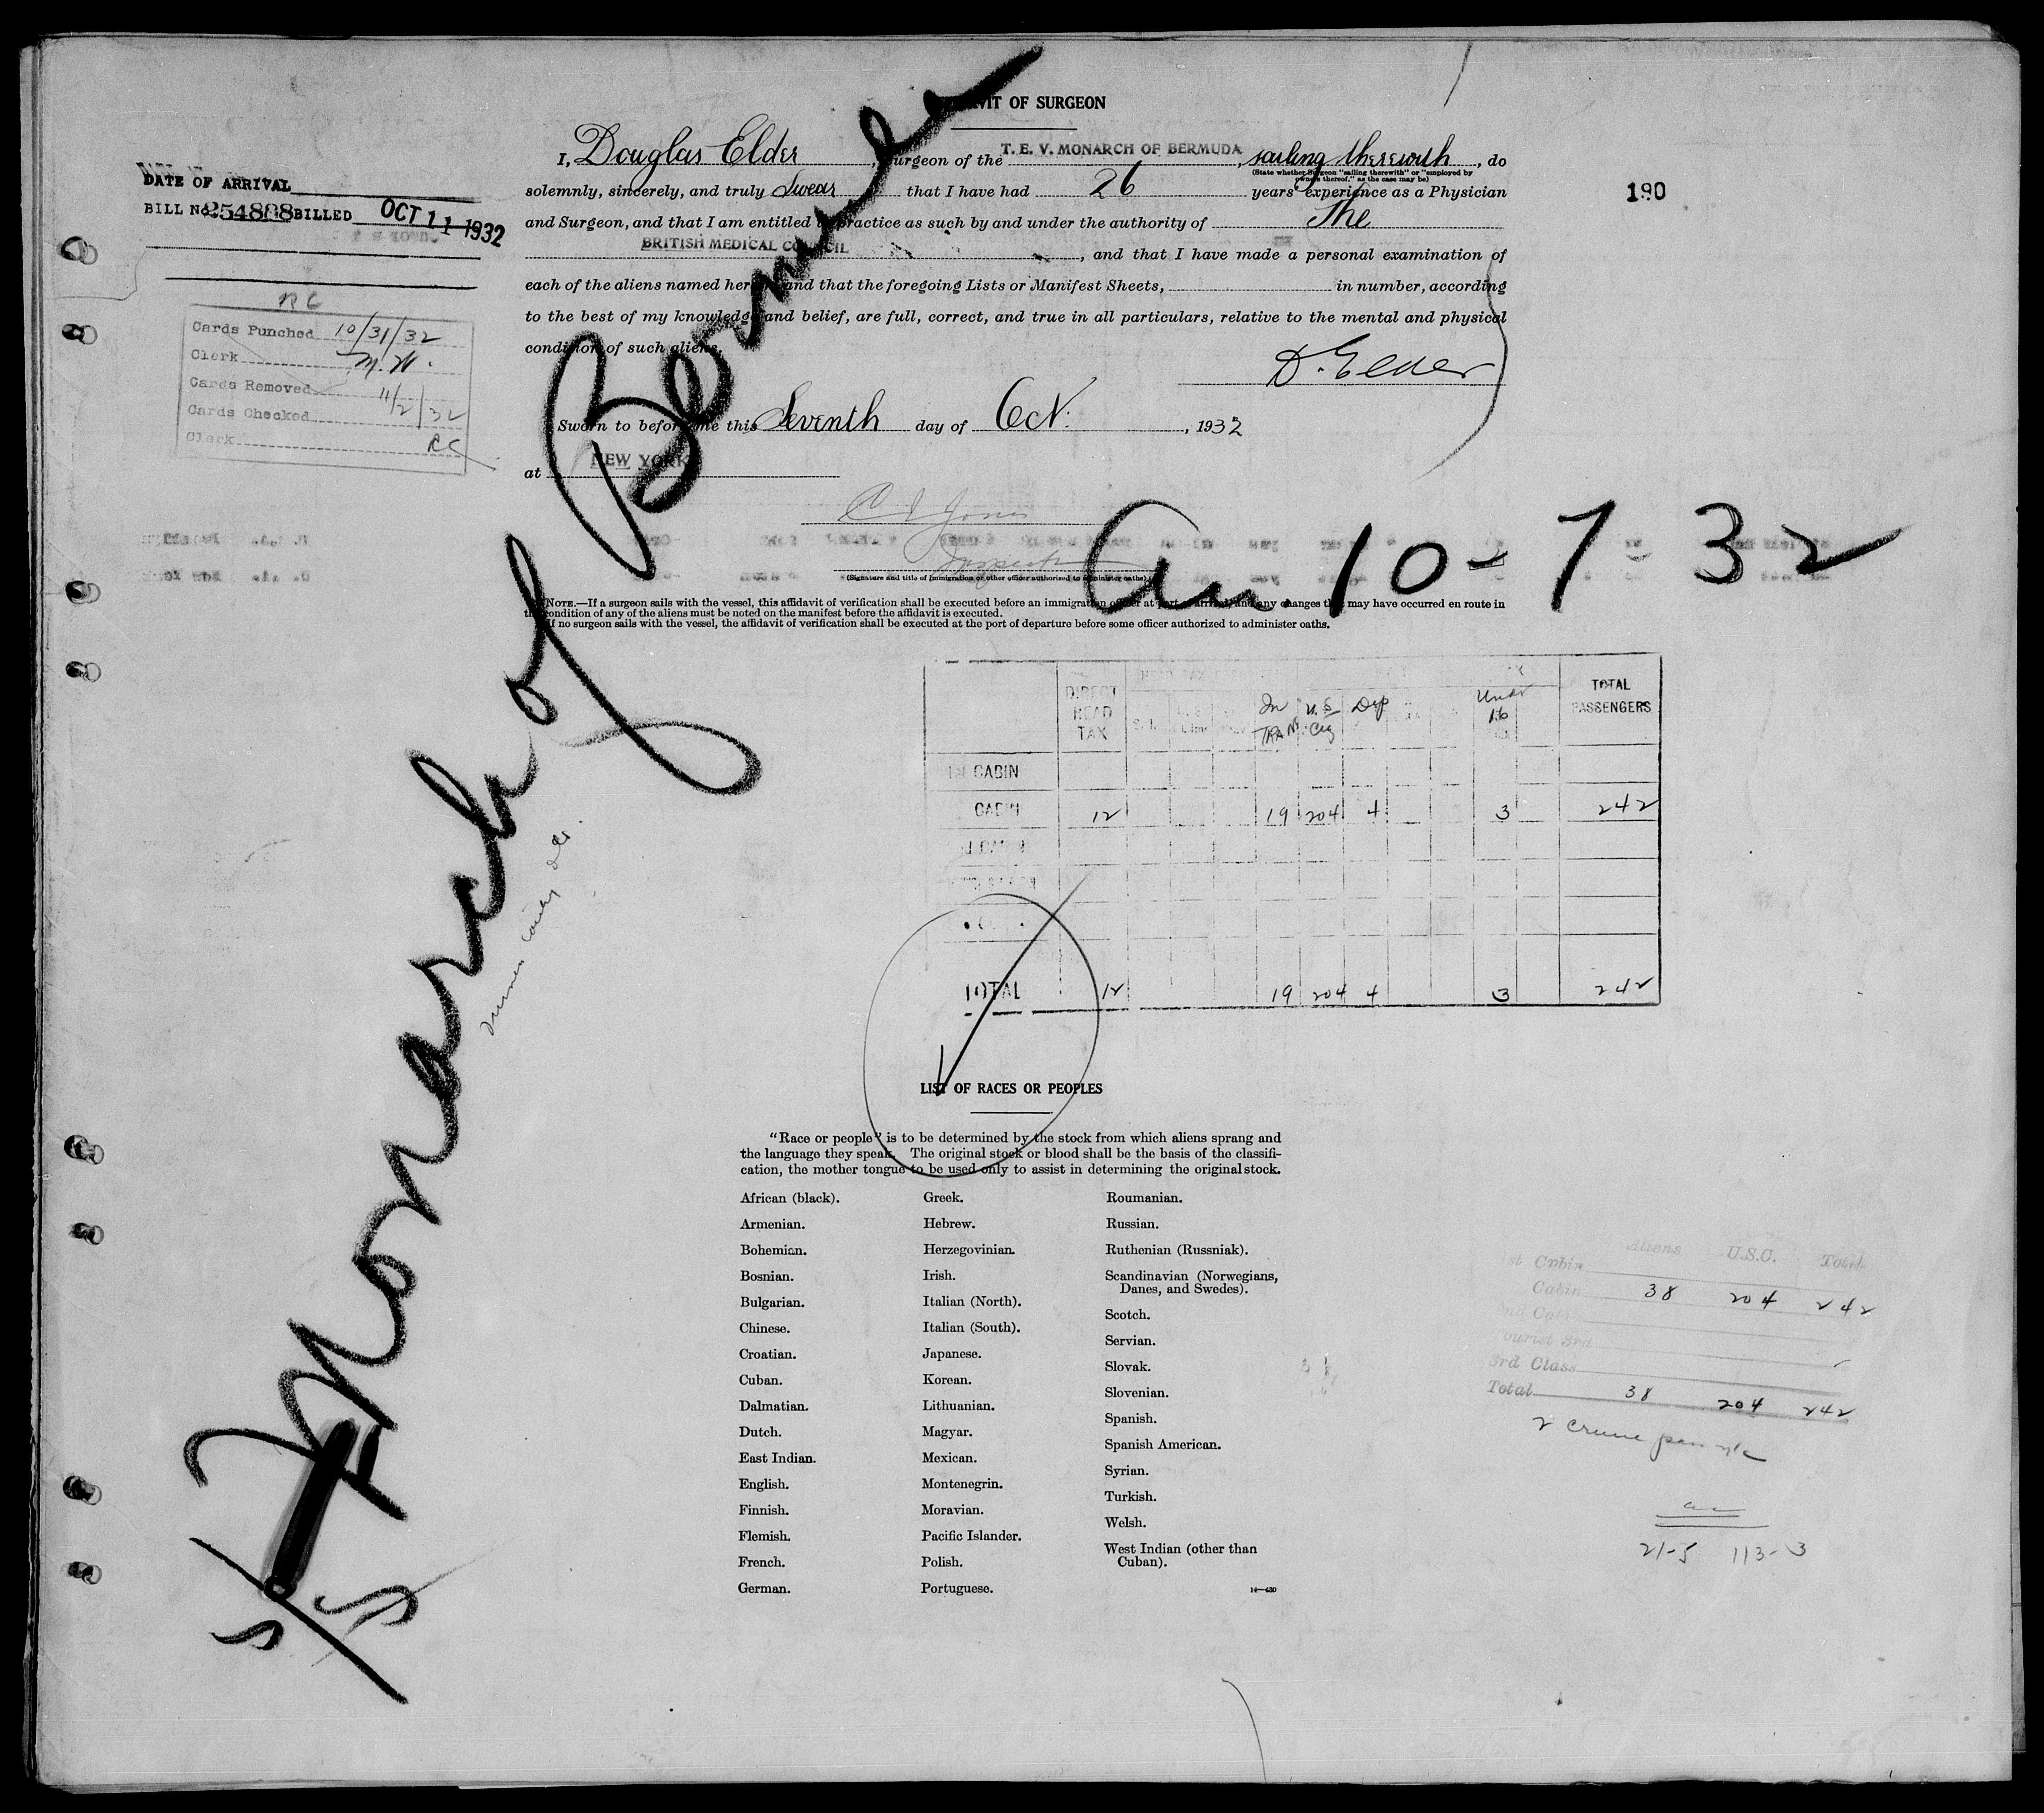 AFFIDAVIT OF SURGEON
I, Douglas Elder, Surgeon of the T. E. V. MONARCH OF BERMUDA, sailing therewith, do
(State whether Surgeon "sailing therewith" or "employed by
owners thereof," as the case may be)
solemnly, sincerely, and truly Swear that I have had 26 years' experience as a Physician
and Surgeon, and that I am entitled to practice as such by and under the authority of The
BRITISH MEDICAL COUNCIL, and that I have made a personal examination of
each of the aliens named herein, and that the foregoing Lists or Manifest Sheets, in number, according
to the best of my knowledge and belief, are full, correct, and true in all particulars, relative to the mental and physical
condition of such aliens.
D. Elder
Sworn to before me this Seventh day of Oct. , 1932
at NEW YORK
C I Jones
Inspector
(Signature and title of immigration or other officer authorized to administer oaths)
NOTE.—If a surgeon sails with the vessel, this affidavit of verification shall be executed before an immigration officer at port of arrival, and any changes that may have occurred en route in
the condition of any of the aliens must be noted on the manifest before the affidavit is executed.
If no surgeon sails with the vessel, the affidavit of verification shall be executed at the port of departure before some officer authorized to administer oaths.
DATE OF ARRIVAL
BILL No. 254808 BILLED OCT 11 1932
190
RC
Cards Punched 10/31/32
Clerk M. W.
Cards Removed
Cards Checked 11/2/32
Clerk RC
S/S Monarch of Bermuda
Arr 10-7 32
DIRECT HEAD TAX In TRANS. U.S. Ctz Dep Under 16 TOTAL PASSENGERS
CABIN
CABIN 12 19 204 4 3 242
TOTAL 12 19 204 4 3 242
LIST OF RACES OR PEOPLES
"Race or people" is to be determined by the stock from which aliens sprang and
the language they speak. The original stock or blood shall be the basis of the classifi-
cation, the mother tongue to be used only to assist in determining the original stock.
African (black).
Armenian.
Bohemian.
Bosnian.
Bulgarian.
Chinese.
Croatian.
Cuban.
Dalmatian.
Dutch.
East Indian.
English.
Finnish.
Flemish.
French.
German.
Greek.
Hebrew.
Herzegovinian.
Irish.
Italian (North).
Italian (South).
Japanese.
Korean.
Lithuanian.
Magyar.
Mexican.
Montenegrin.
Moravian.
Pacific Islander.
Polish.
Portuguese.
Roumanian.
Russian.
Ruthenian (Russniak).
Scandinavian (Norwegians,
Danes, and Swedes).
Scotch.
Servian.
Slovak.
Slovenian.
Spanish.
Spanish American.
Syrian.
Turkish.
Welsh.
West Indian (other than
Cuban).
14—430
Aliens U.S.C. Total
1st Cabin
Cabin 38 204 242
2nd Cabin
Tourist 3rd
3rd Class
Total 38 204 242
2 cruise
21-5 113-3